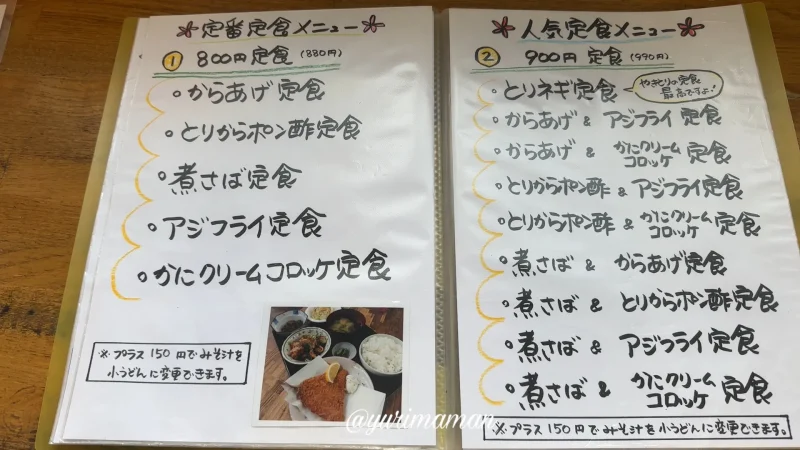 定番定食メニュー
① 800円定食 (880円)
。からあげ定食
。とりからポン酢定食
。煮さば定食
。アジフライ定食
。かにクリームコロッケ定食
※プラス150円でみそ汁を
小うどんに変更できます。
人気定食メニュー
② 900円 定食 (990円)
。とりネギ定食
やきとりの定食
最高ですよ!
。からあげ & アジフライ定食
。からあげ & かにクリームコロッケ定食
。とりからポン酢 & アジフライ定食
。とりからポン酢 & かにクリームコロッケ定食
。煮さば & からあげ定食
。煮さば & とりからポン酢定食
。煮さば & アジフライ定食
。煮さば & かにクリームコロッケ定食
※プラス150円でみそ汁を小うどんに変更できます。
@yurimaman